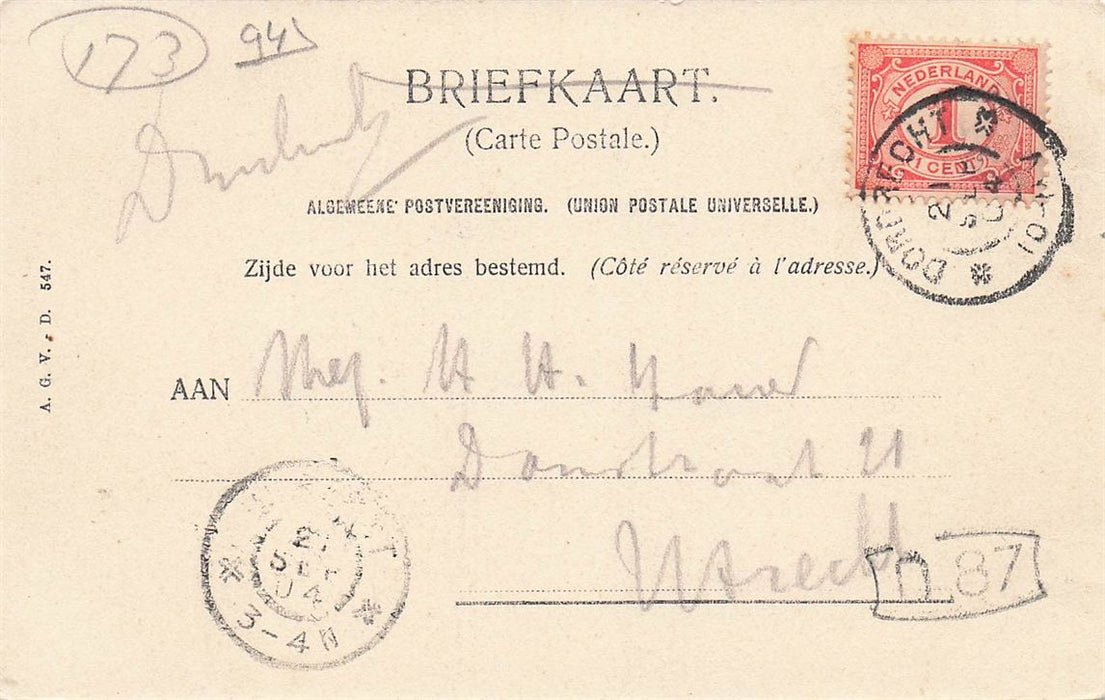 173 945
Drukwerk
BRIEFKAART.
(Carte Postale.)
NEDERLAND
1
1 CENT
DORDRECHT
21 SEP 04
ALGEMEENE POSTVEREENIGING. (UNION POSTALE UNIVERSELLE.)
Zijde voor het adres bestemd. (Côté réservé à l'adresse.)
A. G. V. D. 547.
AAN Mej. H H.
Domstraat 21
Utrecht
UTRECHT
21 SEP 04
3-4N
D.87